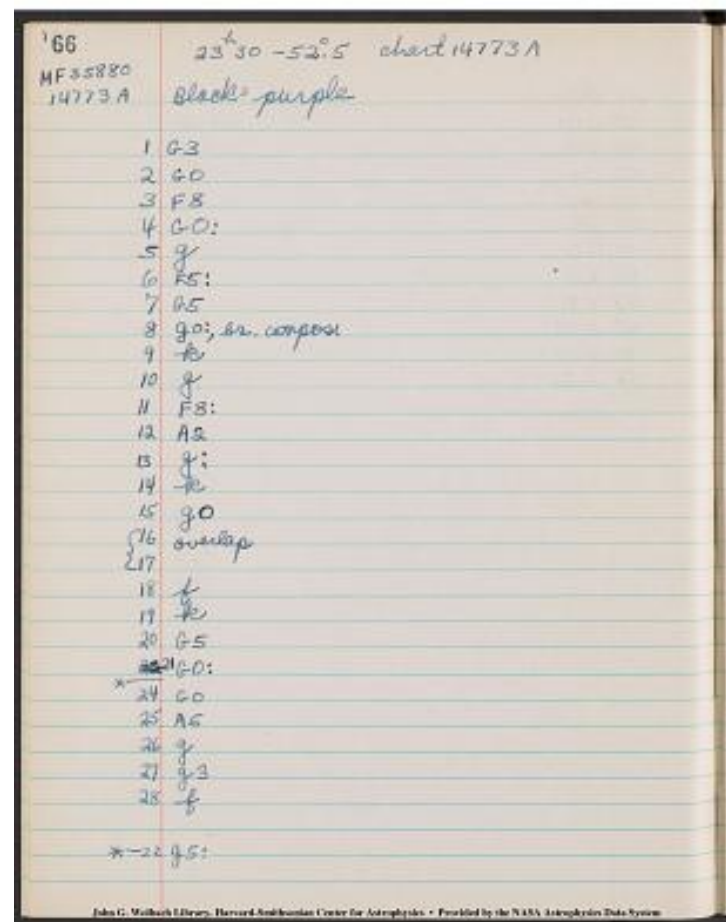 '66 23h30 -52°.5 chart 14773A
MF35880
14773A Black = purple
1 G3
2 G0
3 F8
4 G0:
5 g
6 F5:
7 G5
8 g0:,
9 k
10 g
11 F8:
12 A2
13 g:
14 k
15 g0
16 overlap
17
18 f
19 k
20 G5
21 G0:
*
24 G0
25 A5
26 g
27 g3
28 f
*-22 g5:
John G. Wolbach Library, Harvard-Smithsonian Center for Astrophysics • Provided by the NASA Astrophysics Data System